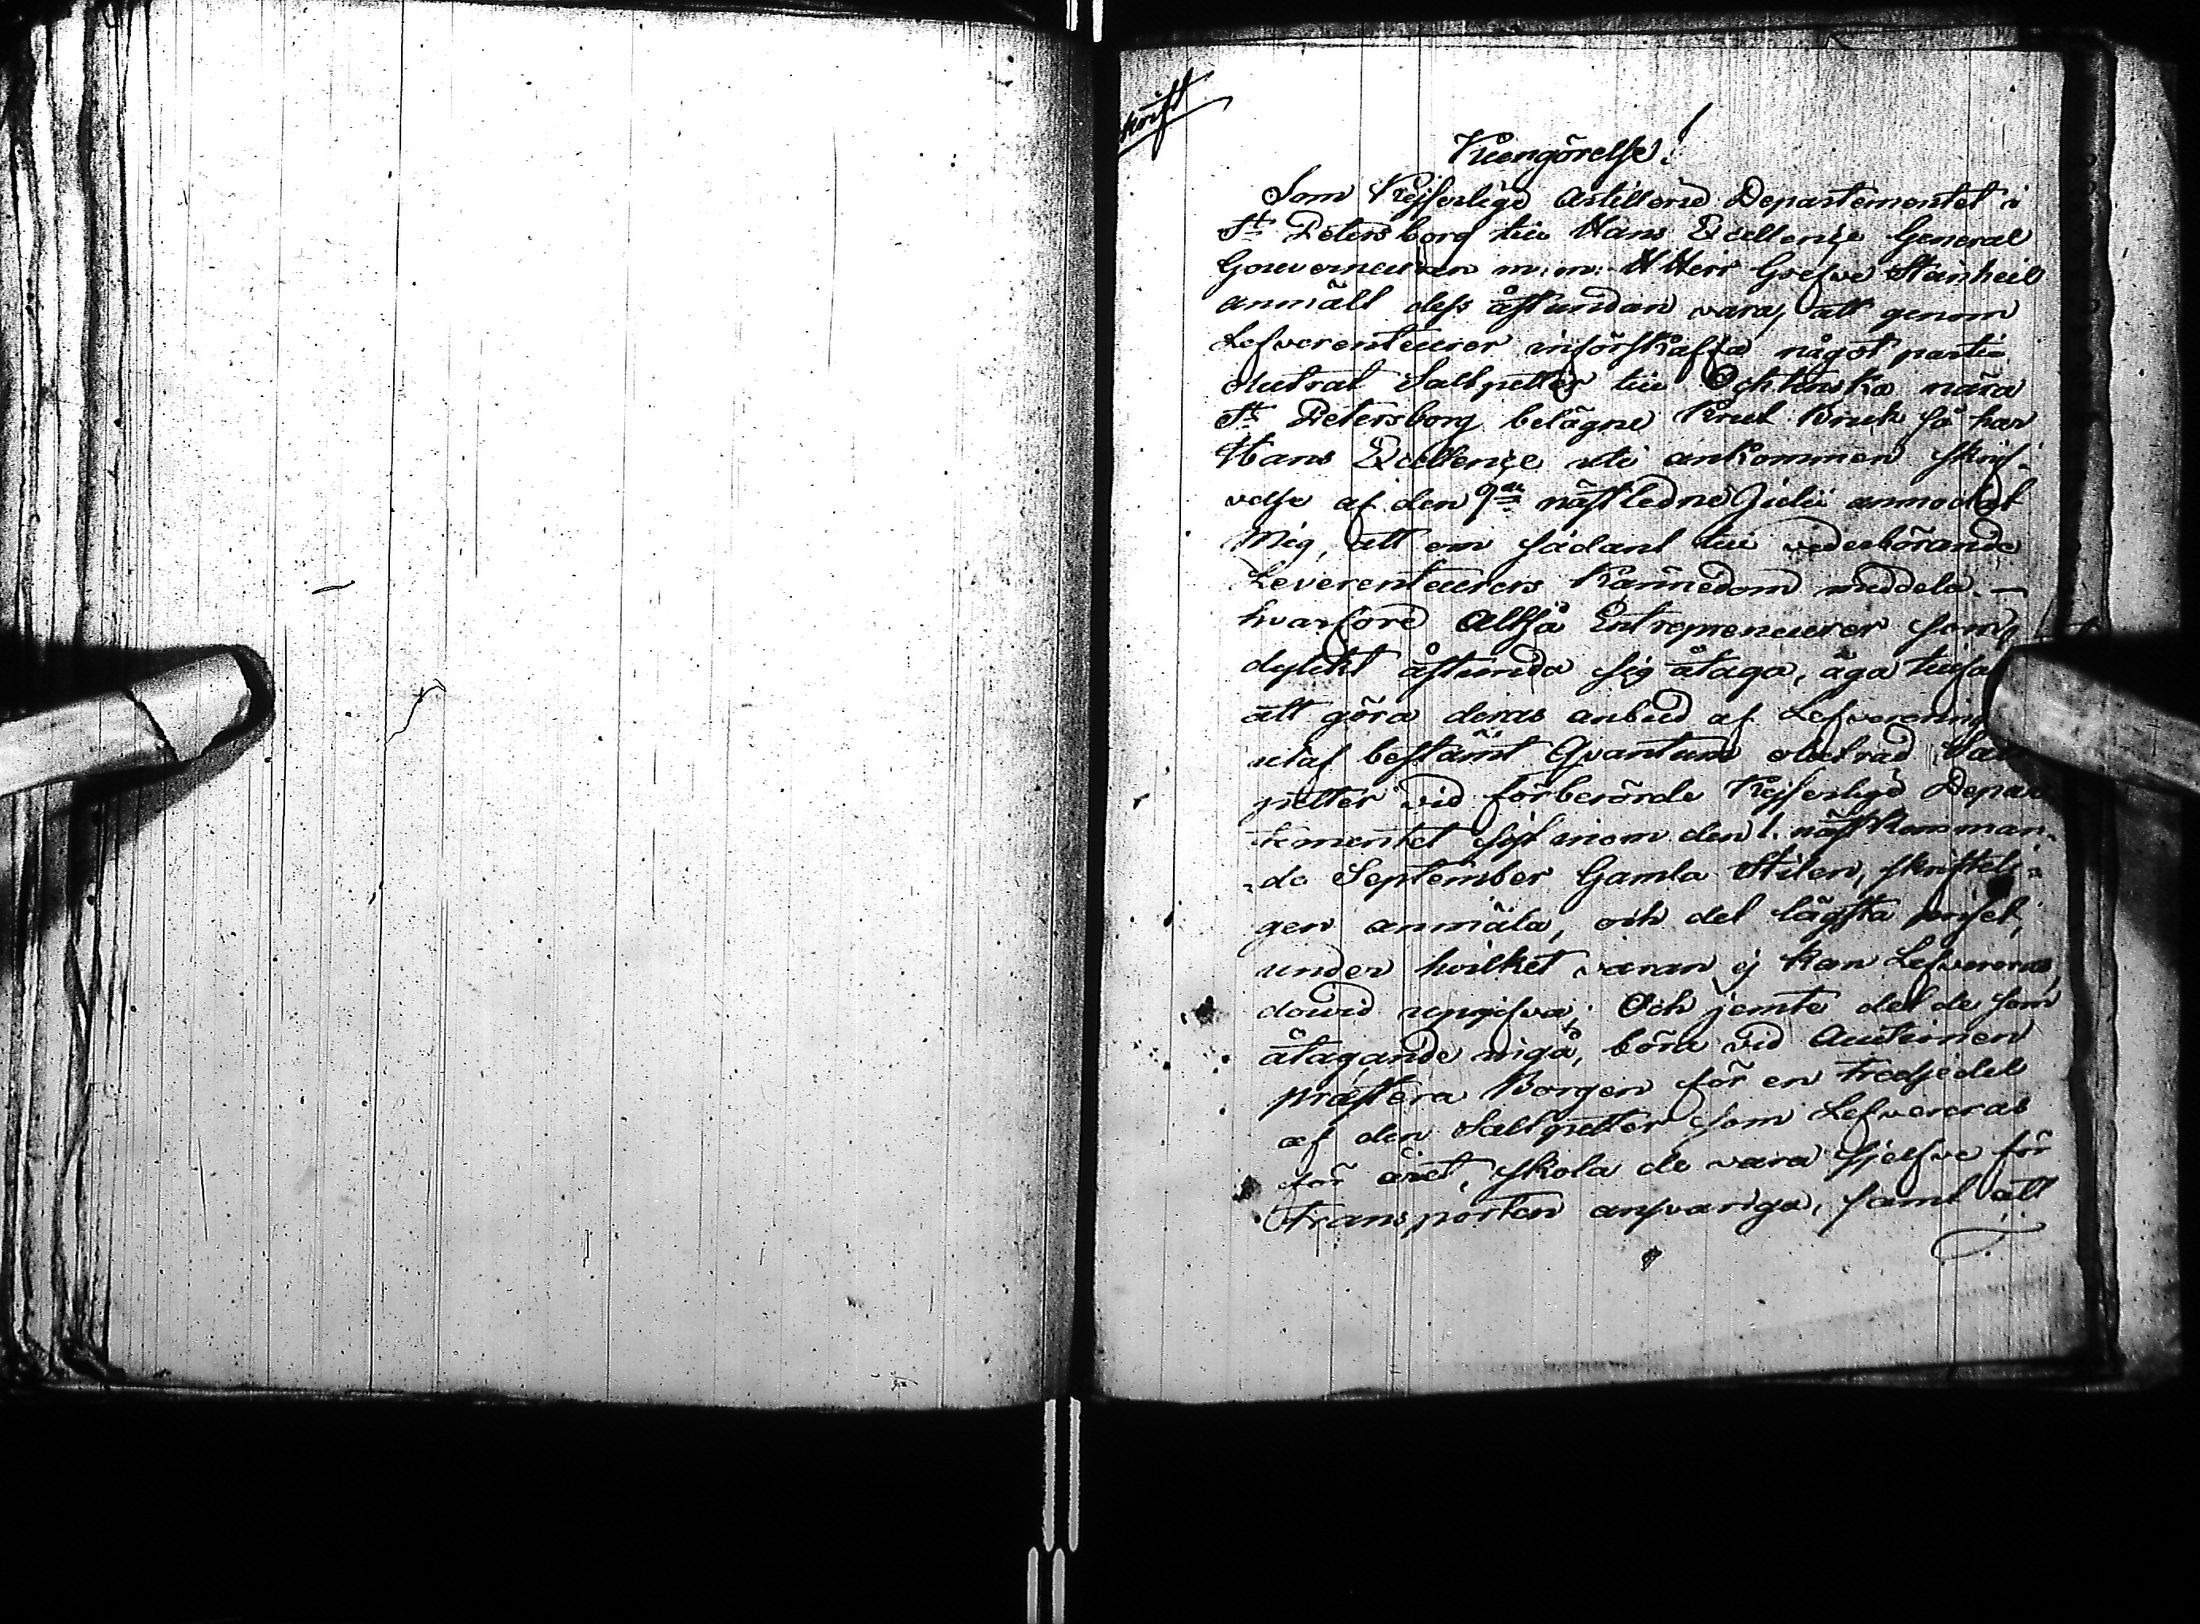 skrift
Kungörelse!
Som Kejserlige Artillerie Departementet i
St Petersborg till Hans Excellençe General
Gouverneuren m: m: H Herr Grefve Steinheil
anmält dess åstundan vara, att genom
Lefverenteurer införskaffa något partie
olutrat Saltpetter till Ochtenska nära
St Petersborg belägne Krut Bruk så har
Hans Excellençe uti ankommen Skrif-
velse af den 9de nästledne Julii anmodat
Mig, att om sådant till vederbörande
Leverenteurers Kännedom meddela. —
hvarföre Altså Entrepreneurer som
dylikt åstunda sig åtaga, äga
att göra deras anbud af Lefverering
utaf bestämt Qvantum olutrad Salt
petter vid förberörde Kejserlige Depar
tementet sist inom den 1. nästkomman-
de September Gamla Stilen, skrifteli-
gen anmäla, och det lägsta priset,
under hvilket varan ej kan Lefvereras,
derwid upgifva; Och jemte det de som
åtagande ingå, böra vid Auctionen
præstera Borgen för en Tredjedel
af den Saltpetter som Lefvereras
för året, skola de vara sjelfve för
Transporten ansvariga, samt att